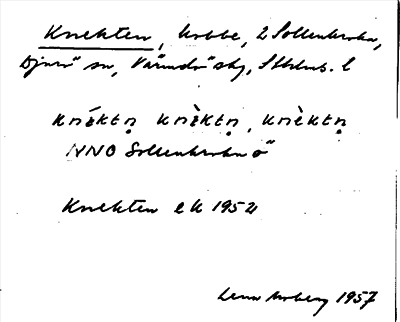 Knekten, kobbe, 2 Sollenkroka,
Djurö sn, Värmdö skg, Sthlms. l
knéktn̥ knèktn̥, knèktn̥
NNO Sollenkroka ö
Knekten ek 1952
1957